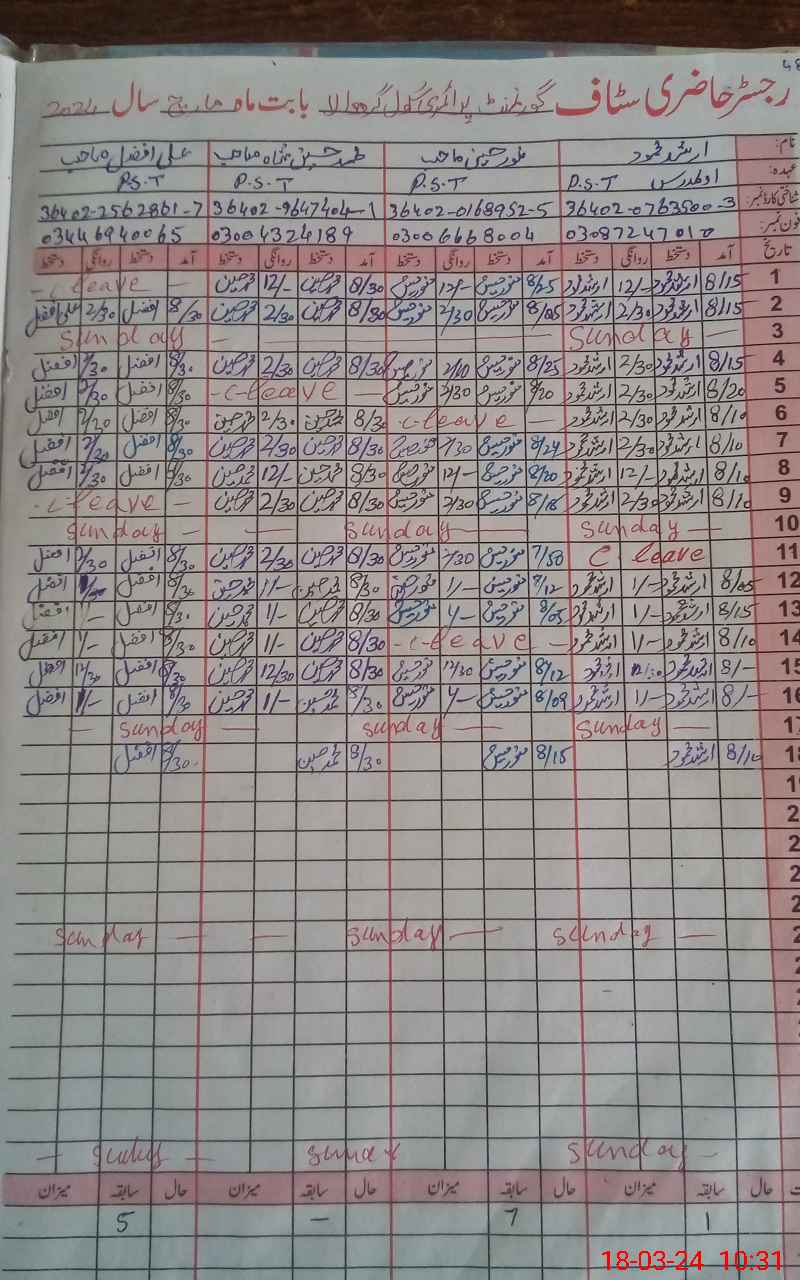 48
رجسٹر حاضری سٹاف گورنمنٹ پرائمری سکول بابت ماہ مارچ سال 2024
نام: ارشد محمود منور حسین صاحب محمد حسین شاہ صاحب علی افضل صاحب
عہدہ: اول مدرس P.S.T P.S.T P.S.T P.S.T
شناختی کارڈ نمبر: 36402-0763500-3 36402-0168952-5 36402-9647404-1 36402-2562861-7
فون نمبر: 03087247010 03006668004 03004324189 03446940065
تاریخ آمد دستخط روانگی دستخط آمد دستخط روانگی دستخط آمد دستخط روانگی دستخط آمد دستخط روانگی دستخط
1 8/15 ارشد محمود 12/- ارشد محمود 8/25 منور حسین 12/- منور حسین 8/30 محمد حسین 12/- محمد حسین - C leave -
2 8/15 ارشد محمود 2/30 ارشد محمود 8/05 منور حسین 2/30 منور حسین 8/30 محمد حسین 2/30 محمد حسین 8/30 افضل 2/30 علی افضل
3 Sunday — Sunday —
4 8/15 ارشد محمود 2/30 ارشد محمود 8/25 منور حسین منور حسین 8/30 محمد حسین 2/30 محمد حسین 8/30 افضل 2/30 افضل
5 8/20 ارشد محمود 2/30 ارشد محمود 8/20 منور حسین 2/30 منور حسین - C-leave - 8/30 افضل 2/30 افضل
6 8/10 ارشد محمود 2/30 ارشد محمود - C-leave - 8/30 محمد حسین 2/30 محمد حسین 8/30 افضل 2/30 افضل
7 8/10 ارشد محمود 2/30 ارشد محمود 8/24 منور حسین 2/30 منور حسین 8/30 محمد حسین 2/30 محمد حسین 8/30 افضل 2/30 افضل
8 8/10 ارشد محمود 12/- ارشد محمود 8/20 منور حسین 12/- منور حسین 8/30 محمد حسین 12/- محمد حسین 8/30 افضل افضل
9 8/10 ارشد محمود 2/30 ارشد محمود 8/18 منور حسین 2/30 منور حسین 8/30 محمد حسین 2/30 محمد حسین - C-leave -
10 Sunday — Sunday — Sunday —
11 C leave 7/50 منور حسین 2/30 منور حسین 8/30 محمد حسین 2/30 محمد حسین 8/30 افضل 2/30 افضل
12 8/05 ارشد محمود 1/- ارشد محمود 8/12 منور حسین 1/- منور حسین 8/30 محمد حسین 1/- محمد حسین 8/30 افضل افضل
13 8/15 ارشد محمود 1/- ارشد محمود 8/05 منور حسین 1/- منور حسین 8/30 محمد حسین 1/- محمد حسین 8/30 افضل 1/- افضل
14 8/10 ارشد محمود 1/- ارشد محمود - C-leave - 8/30 محمد حسین 1/- محمد حسین 8/30 افضل 1/- افضل
15 8/- ارشد محمود 12/30 ارشد محمود 8/12 منور حسین 12/30 منور حسین 8/30 محمد حسین 12/30 محمد حسین 8/30 افضل 12/30 افضل
16 8/- ارشد محمود 1/- ارشد محمود 8/09 منور حسین 1/- منور حسین 8/30 محمد حسین 1/- محمد حسین 8/30 افضل 1/- افضل
17 Sunday — Sunday — Sunday —
18 8/10 ارشد محمود 8/15 منور حسین 8/30 محمد حسین 8/30 افضل
19
2
2
2
2
2 Sunday — Sunday — Sunday —
2
2
Sunday -
حال سابقہ میزان حال سابقہ میزان حال سابقہ میزان حال سابقہ میزان
1 7 - 5
18-03-24 10:31